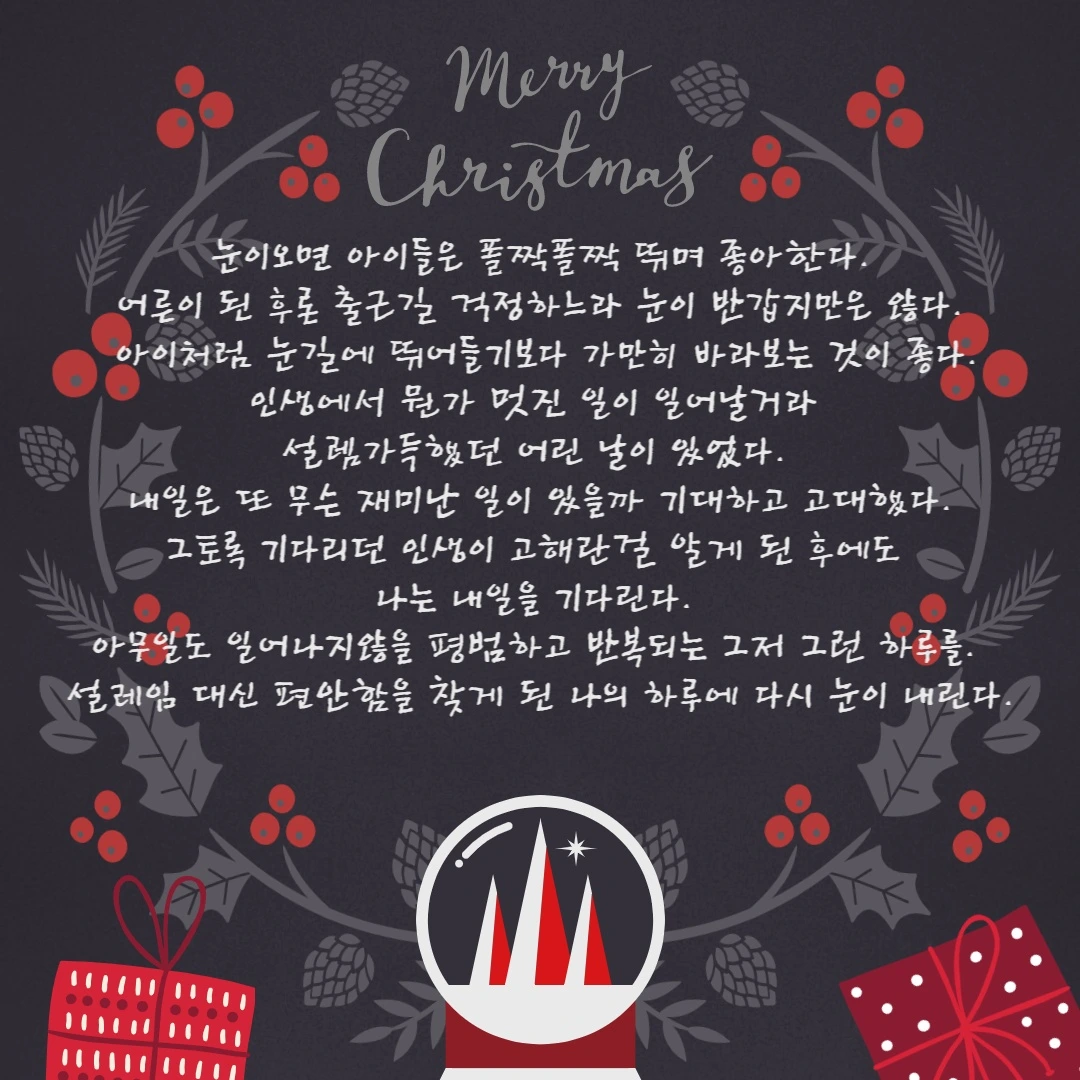 Merry
Christmas
눈이오면 아이들은 폴짝폴짝 뛰며 좋아한다.
어른이 된 후론 출근길 걱정하느라 눈이 반갑지만은 않다.
아이처럼 눈길에 뛰어들기보다 가만히 바라보는 것이 좋다.
인생에서 뭔가 멋진 일이 일어날거라
설렘가득했던 어린 날이 있었다.
내일은 또 무슨 재미난 일이 있을까 기대하고 고대했다.
그토록 기다리던 인생이 고해란걸 알게 된 후에도
나는 내일을 기다린다.
아무일도 일어나지않을 평범하고 반복되는 그저 그런 하루를.
설레임 대신 편안함을 찾게 된 나의 하루에 다시 눈이 내린다.